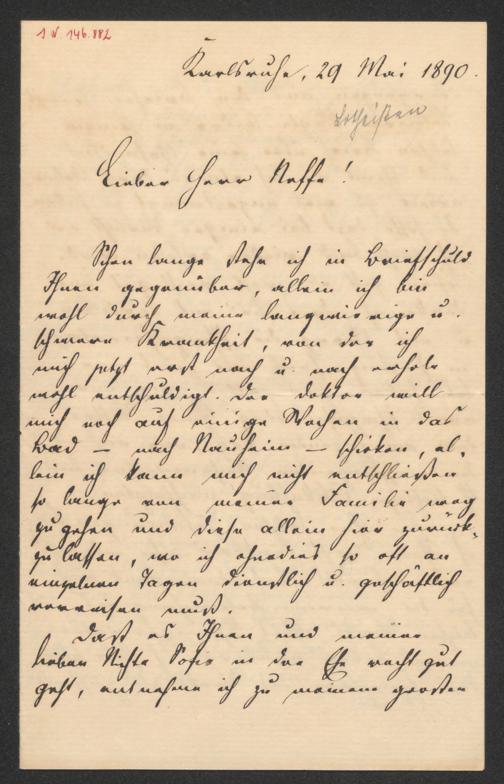 I.N. 146.882
Karlsruhe, 29 Mai 1890.
Lotheissen
Lieber Herr Neffe!
Schon lange stehe ich in Briefschuld
Ihnen gegenüber, allein ich bin
wohl durch meine langwierige u.
schwere Krankheit, von der ich
mich jetzt erst nach u. nach erhole
wohl entschuldigt. Der Doktor will
mich noch auf einige Wochen in das
Bad – nach Nauheim – schicken, al-
lein ich kann mich nicht entschließen
so lange von meiner Familie weg
zu gehen und diese allein hier zurück-
zu lassen, wo ich ohnedies so oft an
einzelnen Tagen dienstlich u. geschäftlich
verreisen muß.
Daß es Ihnen und meiner
lieben Nichte Sofie in der Ehe recht gut
geht, entnehme ich zu meiner großen